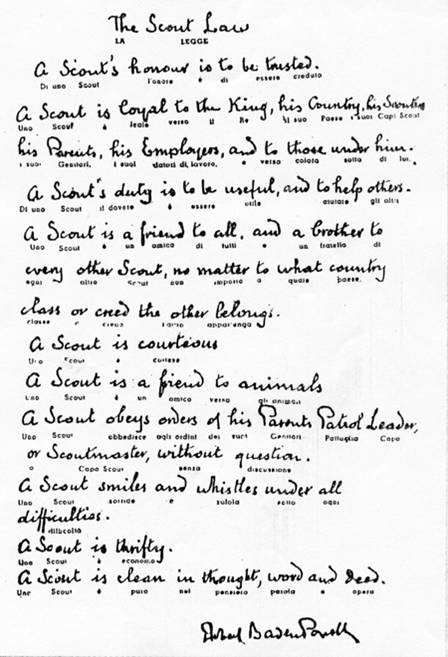 The Scout Law
LA LEGGE
A Scout's honour is to be trusted.
Di uno Scout l'onore è di essere creduto
A Scout is loyal to the King, his Country, his Scouters
Uno Scout è leale verso il Re il suo Paese i suoi Capi Scout
his Parents, his Employers, and to those under him.
i suoi Genitori, i suoi datori di lavoro, e verso coloro sotto di lui.
A Scout's duty is to be useful, and to help others.
Di uno Scout il dovere è essere utile aiutare gli altri
A Scout is a friend to all, and a brother to
Uno Scout è un amico di tutti e un fratello di
every other Scout, no matter to what country
ogni altro Scout non importa a quale paese,
class or creed the other belongs.
classe o credo l'altro appartenga
A Scout is courteous
Uno Scout è cortese
A Scout is a friend to animals
Uno Scout è un amico verso gli animali
A Scout obeys orders of his Parents Patrol Leader,
Uno Scout obbedisce agli ordini dei suoi Genitori Pattuglia Capo
or Scoutmaster, without question.
o Capo Scout senza discussione
A Scout smiles and whistles under all
Uno Scout sorride e zufola sotto ogni
difficulties.
difficoltà
A Scout is thrifty.
Uno Scout è economo
A Scout is clean in thought, word and deed.
Uno Scout è puro nel pensiero parola e opera
Robert Baden Powell